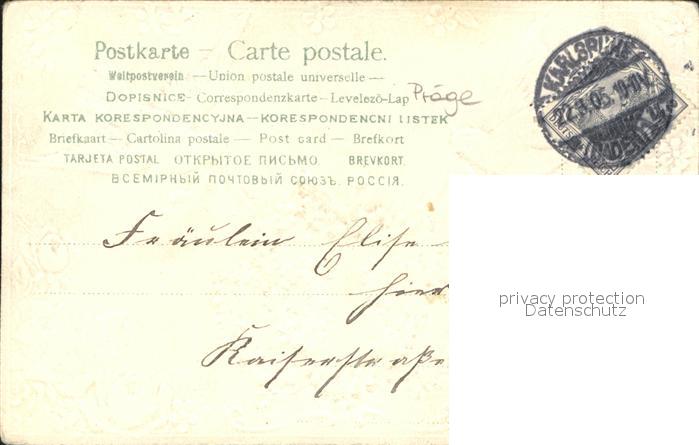 Postkarte – Carte postale.
Weltpostverein — Union postale universelle —
DOPISNICE - Correspondenzkarte - Levelező-Lap
Präge
KARTA KORESPONDENCYJNA — KORESPONDENCNI LISTEK
Briefkaart — Cartolina postale — Post card — Brefkort
TARJETA POSTAL ОТКРЫТОЕ ПИСЬМО. BREVKORT.
ВСЕМІРНЫЙ ПОЧТОВЫЙ СОЮЗЪ. РОССІЯ.
KARLSRUHE
(BADEN)
Fräulein Elise
hier
Kaiserstraße
privacy protection
Datenschutz